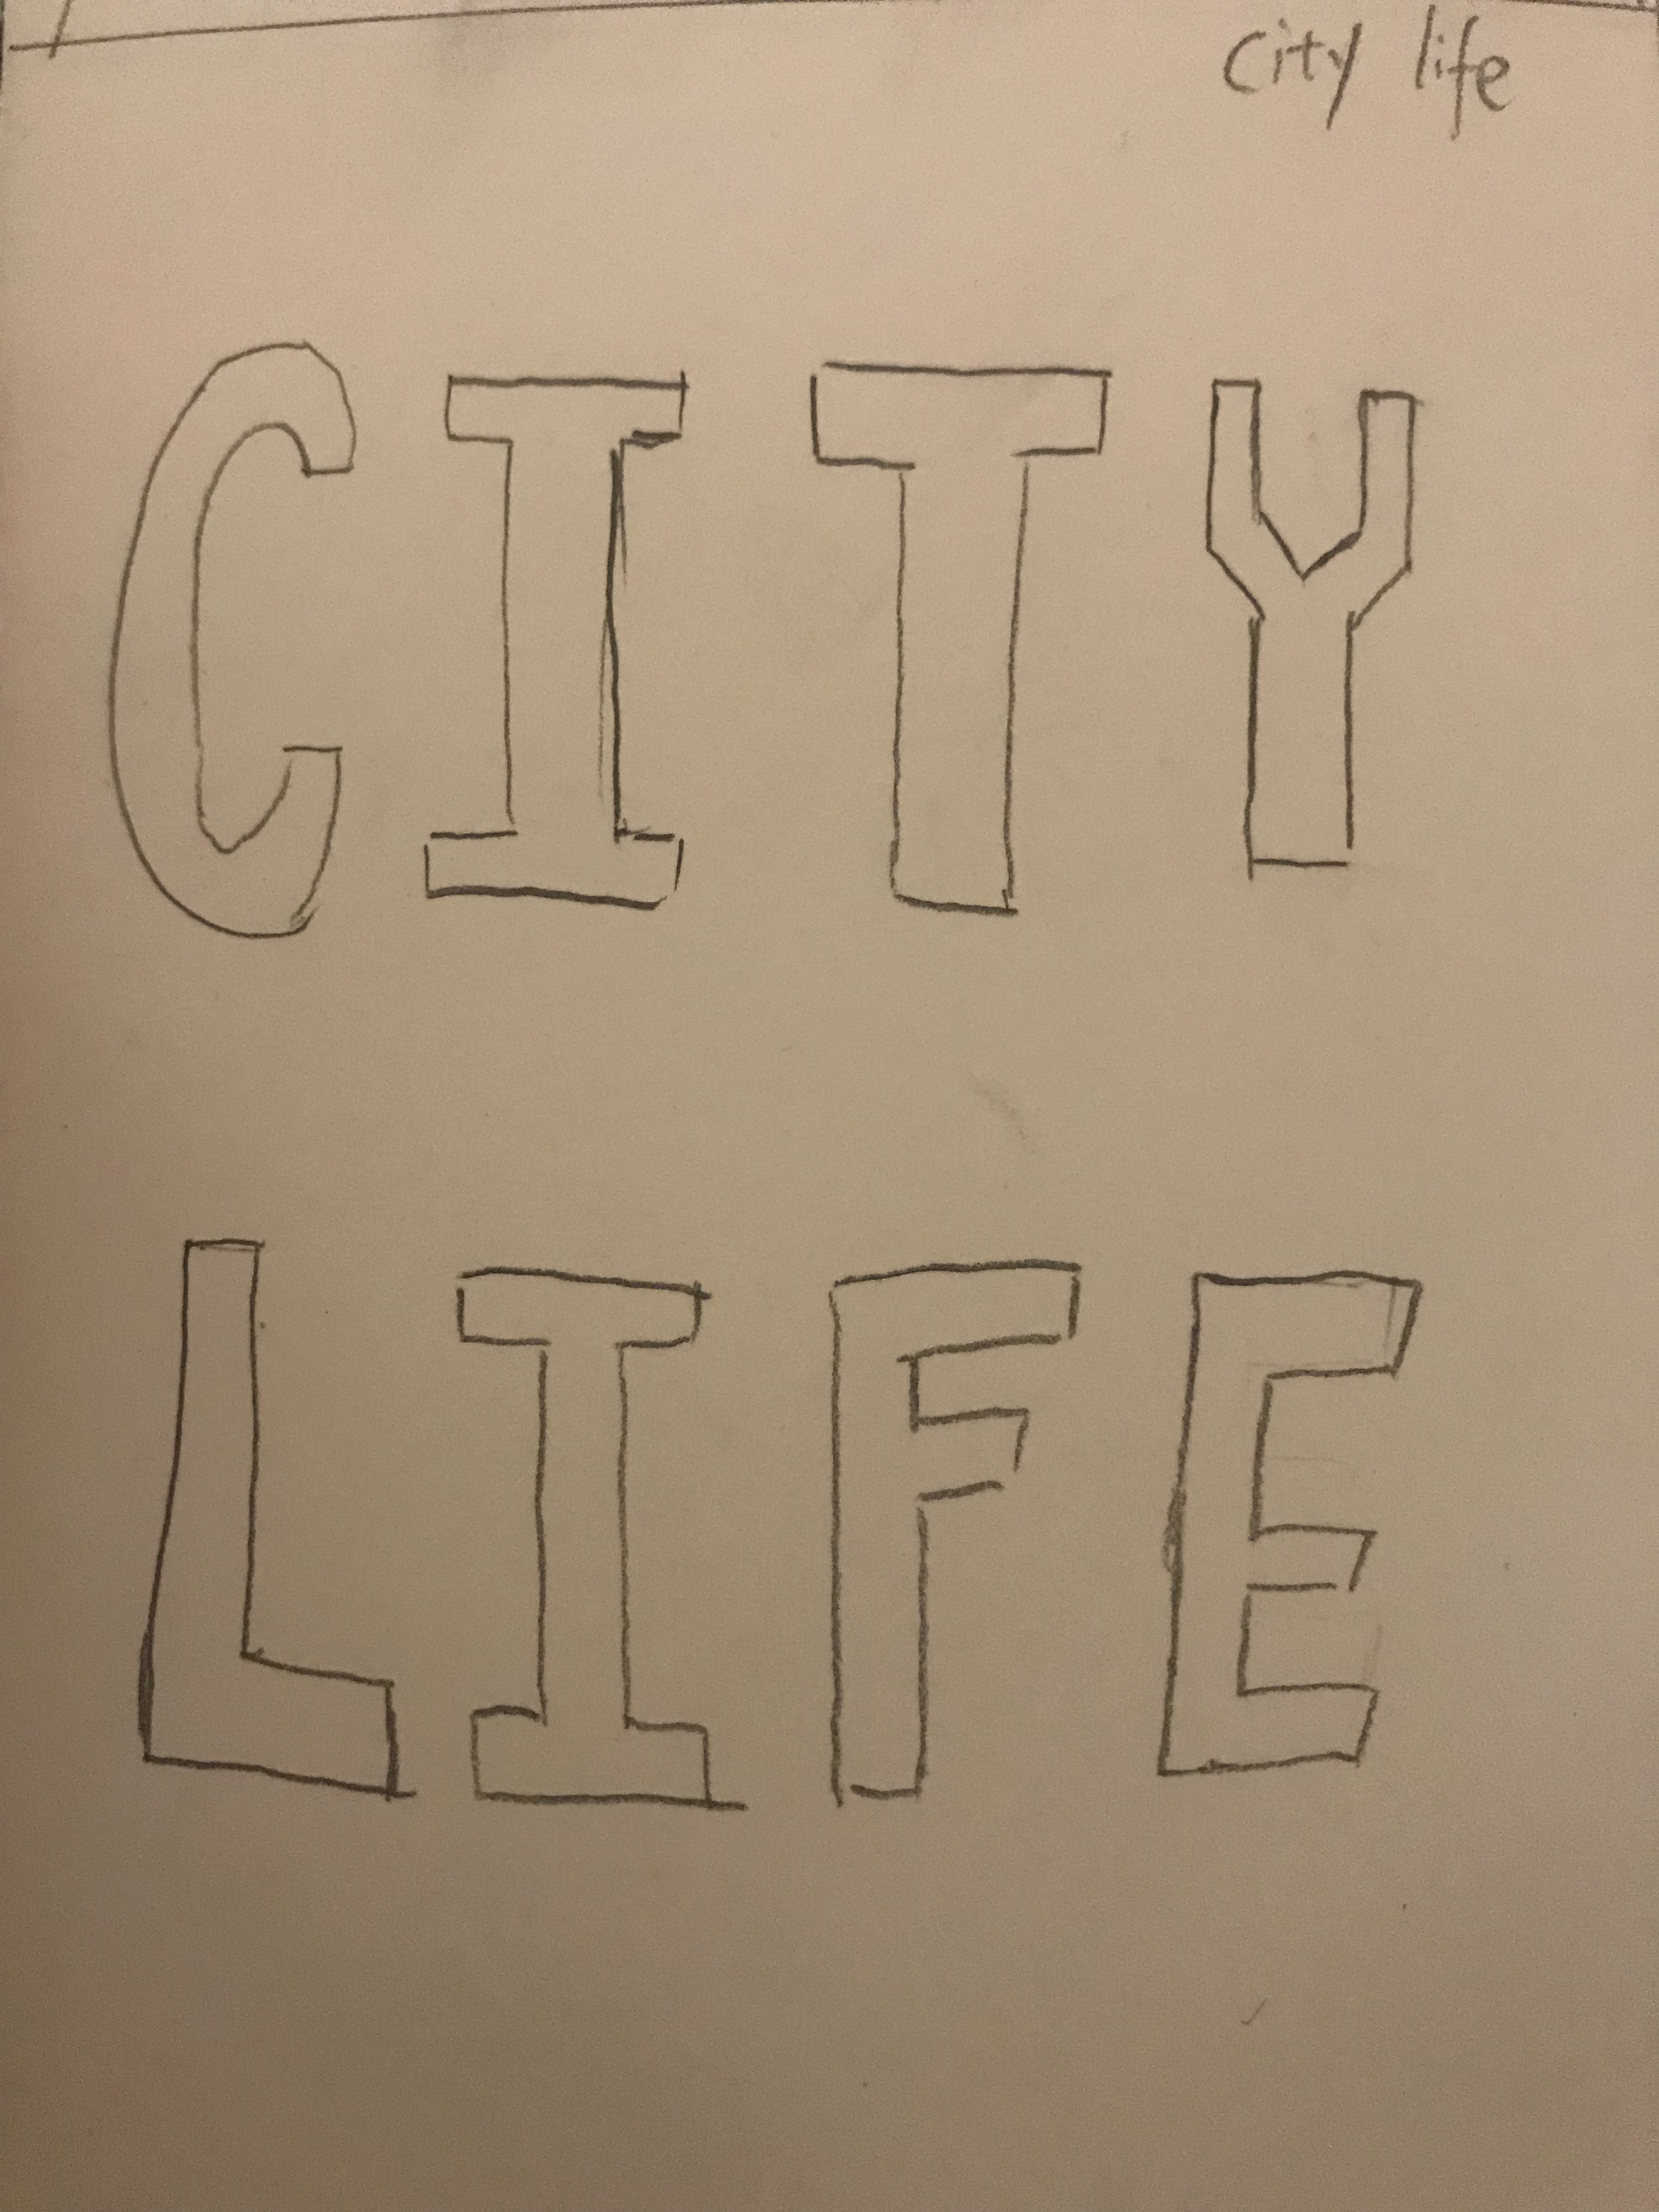 city life
CITY
LIFE